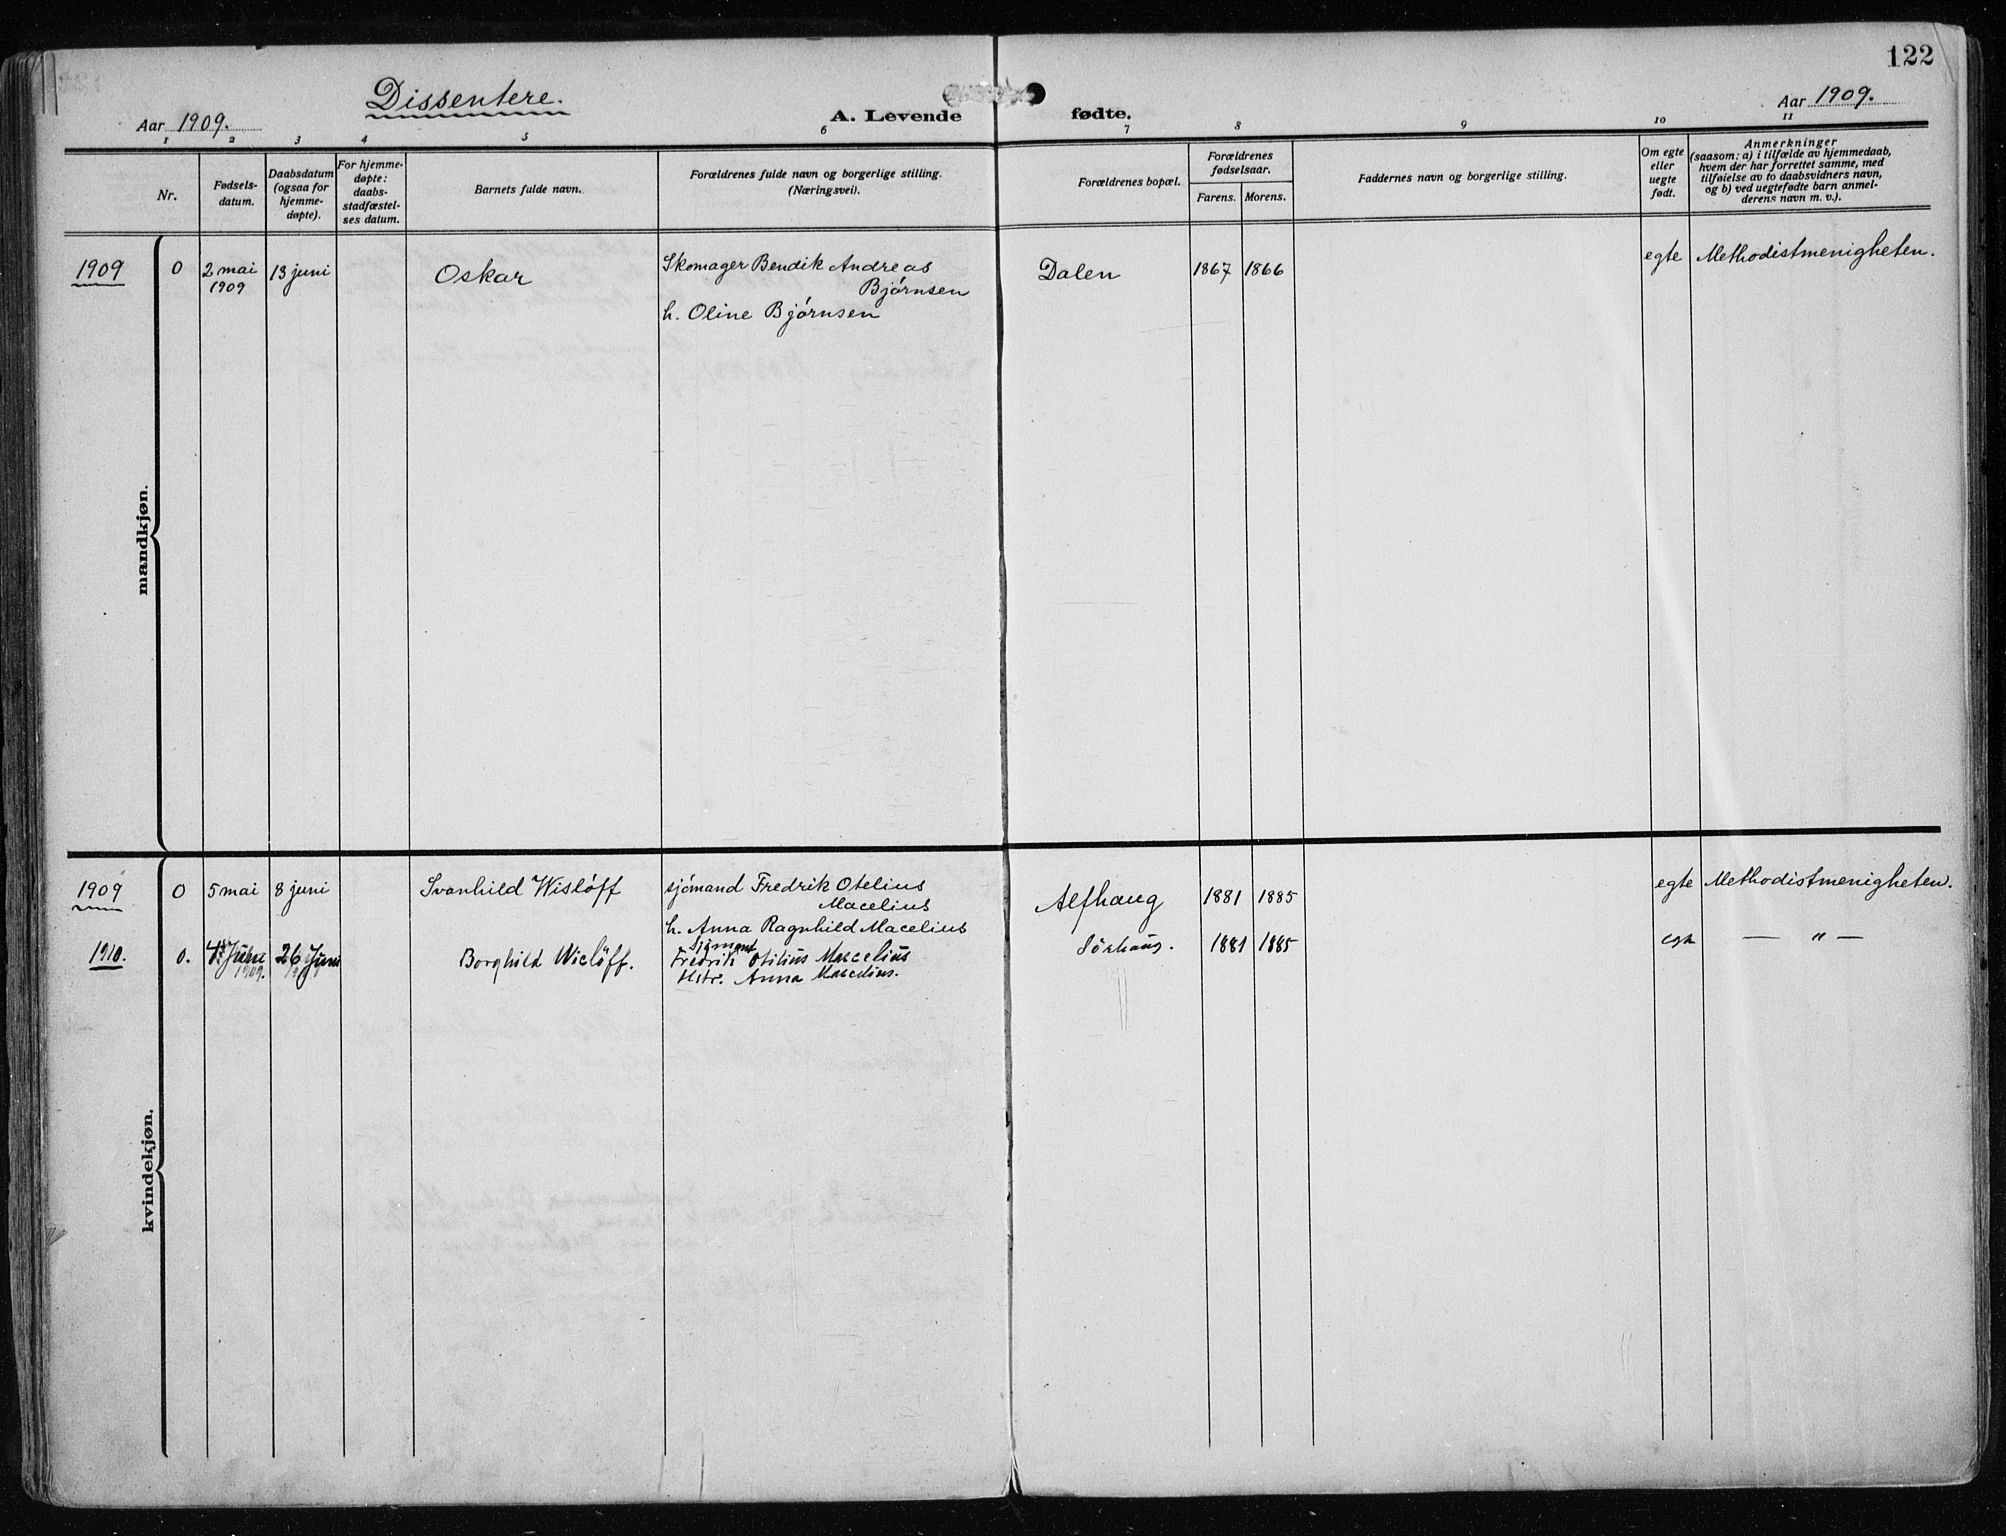 122
Dissentere.
Aar 1909.
A. Levende fødte.
Aar 1909.
1 2 3 4 5 6 7 8 9 10 11
Nr.
Fødsels-
datum.
Daabsdatum
(ogsaa for
hjemme-
døpte).
For hjemme-
døpte:
daabs-
stadfæstel-
ses datum.
Barnets fulde navn.
Forældrenes fulde navn og borgerlige stilling.
(Næringsvei).
Forældrenes bopæl.
Forældrenes
fødselsaar.
Farens. Morens.
Faddernes navn og borgerlige stilling.
Om egte
eller
uegte
født.
Anmerkninger
(saasom: a) i tilfælde av hjemmedaab,
hvem der har forrettet samme, med
tilføielse av to daabsvidners navn,
og b) ved uegtefødte barn anmel-
derens navn m. v.).
mandkjøn.
1909 0 2 mai 13 juni Oskar Skomager Bendik Andreas Dalen 1867 1866 egte Methodistmenigheten.
1909 Bjørnsen
h. Oline Bjørnsen
kvindekjøn.
1909 0 5 mai 8 juni Svanhild Wisløff sjømand Fredrik Otelius Alfhaug 1881 1885 egte Methodistmenigheten.
Macelius
h. Anna Ragnhild Macelius
1910. 0. Juni 26 Juni Borghild Wicløff. Sjømand Sørhaug. 1881 1885 egte — " —
1909. Fredrik Otilius Mascelius
Hstr. Anna Mascelius.